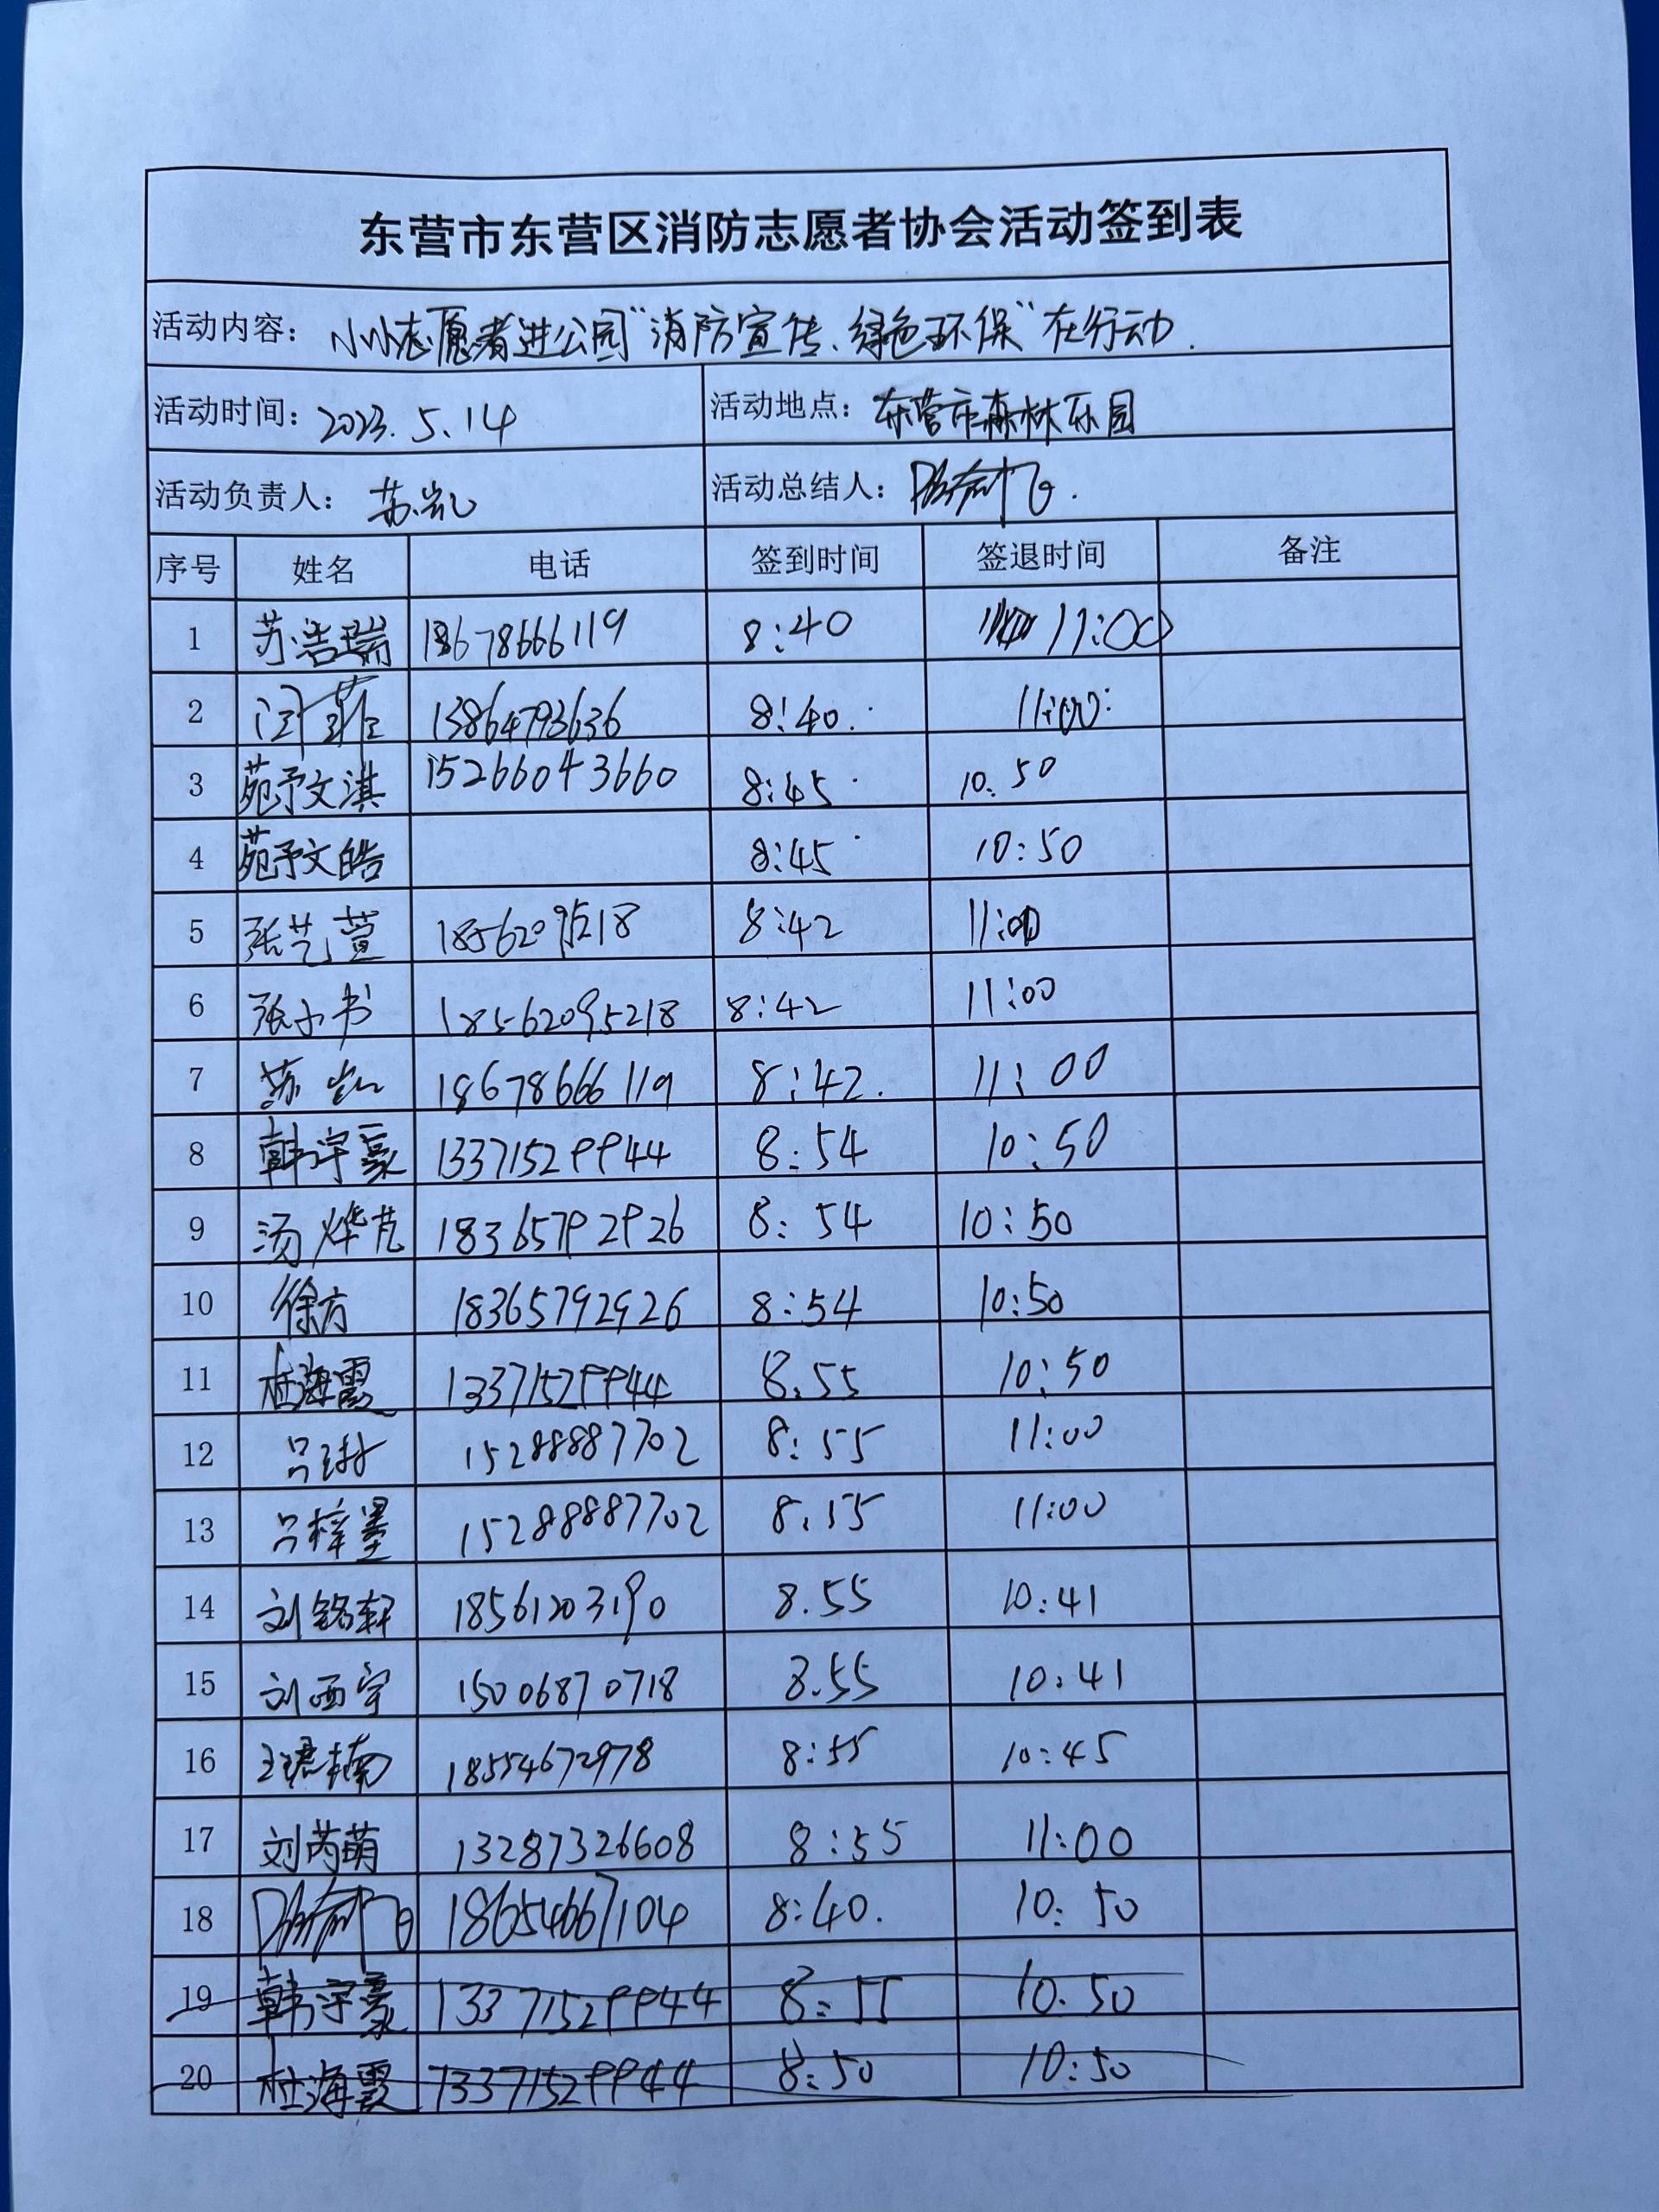 东营市东营区消防志愿者协会活动签到表
活动内容：小小志愿者进公园"消防宣传、绿色环保"在行动.
活动时间：2023.5.14 活动地点：东营市森林乐园
活动负责人：苏凯 活动总结人：
序号 姓名 电话 签到时间 签退时间 备注
1 苏浩瑞 18678666119 8:40 11:00
2 闫菲 13864793636 8:40. 11:00
3 苑予文淇 15266043660 8:45 10.50
4 苑予文皓 8:45 10:50
5 张艺萱 8:42 11:00
6 张小书 18562095218 8:42 11:00
7 苏凯 18678666119 8:42. 11:00
8 韩宇豪 13371529944 8:54 10:50
9 汤烨芃 18365792926 8:54 10:50
10 徐方 18365792926 8:54 10:50
11 杜海霞 13371529944 8.55 10:50
12 吕 15288887702 8:55 11:00
13 吕梓墨 15288887702 8.55 11:00
14 刘铭轩 18561203190 8.55 10:41
15 刘西宇 15006870718 8.55 10:41
16 王珺楠 18554672978 8:55 10:45
17 刘芮萌 13287326608 8:55 11:00
18 18654667104 8:40. 10:50
19 韩宇豪 13371529944 8:55 10.50
20 杜海霞 13371529944 8:50 10:50